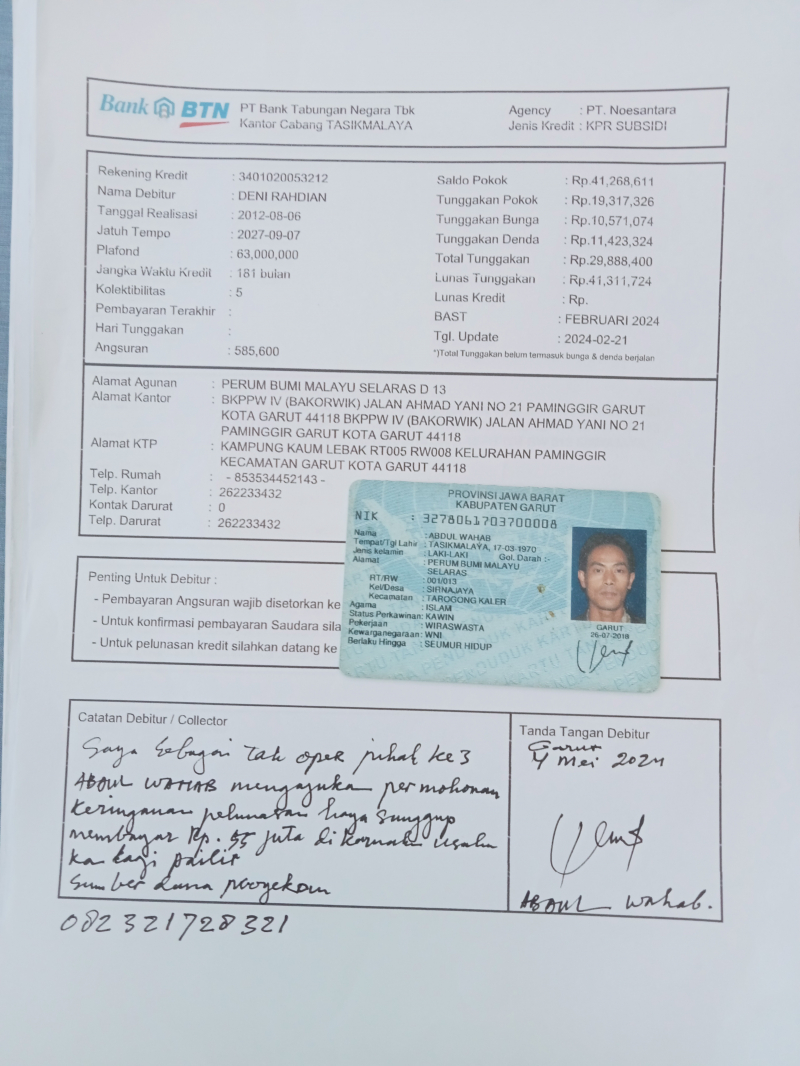 Bank BTN PT Bank Tabungan Negara Tbk
Kantor Cabang TASIKMALAYA
Agency : PT. Noesantara
Jenis Kredit : KPR SUBSIDI
Rekening Kredit : 3401020053212
Nama Debitur : DENI RAHDIAN
Tanggal Realisasi : 2012-08-06
Jatuh Tempo : 2027-09-07
Plafond : 63,000,000
Jangka Waktu Kredit : 181 bulan
Kolektibilitas : 5
Pembayaran Terakhir :
Hari Tunggakan :
Angsuran : 585,600
Saldo Pokok : Rp.41,268,611
Tunggakan Pokok : Rp.19,317,326
Tunggakan Bunga : Rp.10,571,074
Tunggakan Denda : Rp.11,423,324
Total Tunggakan : Rp.29,888,400
Lunas Tunggakan : Rp.41,311,724
Lunas Kredit : Rp.
BAST : FEBRUARI 2024
Tgl. Update : 2024-02-21
*)Total Tunggakan belum termasuk bunga & denda berjalan
Alamat Agunan : PERUM BUMI MALAYU SELARAS D 13
Alamat Kantor : BKPPW IV (BAKORWIK) JALAN AHMAD YANI NO 21 PAMINGGIR GARUT
KOTA GARUT 44118 BKPPW IV (BAKORWIK) JALAN AHMAD YANI NO 21
PAMINGGIR GARUT KOTA GARUT 44118
Alamat KTP : KAMPUNG KAUM LEBAK RT005 RW008 KELURAHAN PAMINGGIR
KECAMATAN GARUT KOTA GARUT 44118
Telp. Rumah : - 853534452143 -
Telp. Kantor : 262233432
Kontak Darurat : 0
Telp. Darurat : 262233432
PROVINSI JAWA BARAT
KABUPATEN GARUT
NIK : 3278061703700008
Nama : ABDUL WAHAB
Tempat/Tgl Lahir : TASIKMALAYA, 17-03-1970
Jenis kelamin : LAKI-LAKI Gol. Darah :-
Alamat : PERUM BUMI MALAYU
SELARAS
RT/RW : 001/013
Kel/Desa : SIRNAJAYA
Kecamatan : TAROGONG KALER
Agama : ISLAM
Status Perkawinan: KAWIN
Pekerjaan : WIRASWASTA
Kewarganegaraan: WNI
Berlaku Hingga : SEUMUR HIDUP
GARUT
26-07-2018
Penting Untuk Debitur :
- Pembayaran Angsuran wajib disetorkan ke
- Untuk konfirmasi pembayaran Saudara sila
- Untuk pelunasan kredit silahkan datang ke
Catatan Debitur / Collector
Saya sebagai tak oper pihak ke 3
ABDUL WAHAB mengajuka permohonan
keringanan pelunasan saya sanggup
membayar Rp. 55 juta di karnakan usaha
ka lagi pailit
Sumber dana
082321728321
Tanda Tangan Debitur
Garut
4 Mei 2024
ABDUL Wahab.